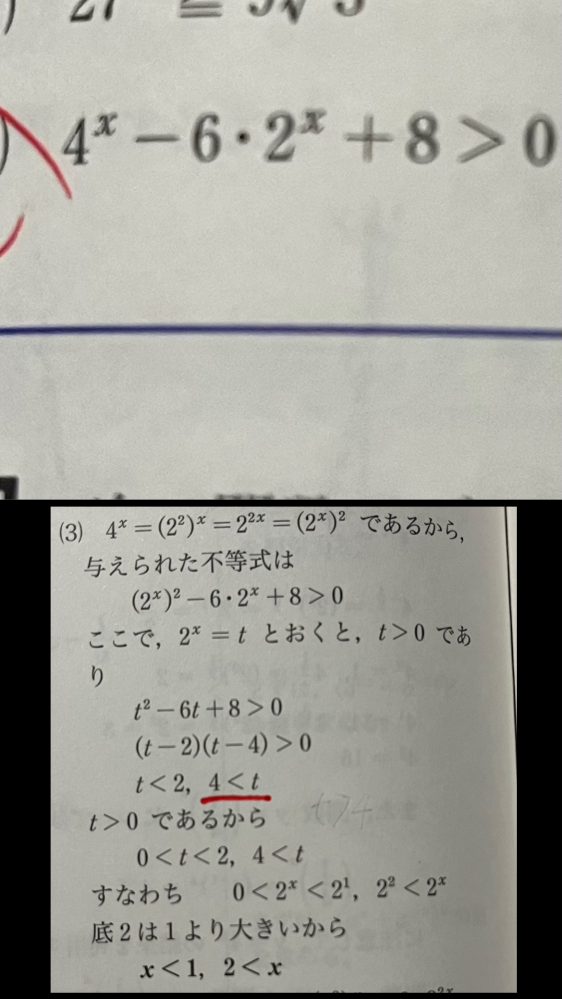 4^x − 6・2^x + 8 > 0
(3) 4^x = (2²)^x = 2^{2x} = (2^x)² であるから,
与えられた不等式は
(2^x)² − 6・2^x + 8 > 0
ここで, 2^x = t とおくと, t > 0 であ
り
t² − 6t + 8 > 0
(t − 2)(t − 4) > 0
t < 2, 4 < t
t > 0 であるから
0 < t < 2, 4 < t
すなわち 0 < 2^x < 2¹, 2² < 2^x
底2は1より大きいから
x < 1, 2 < x